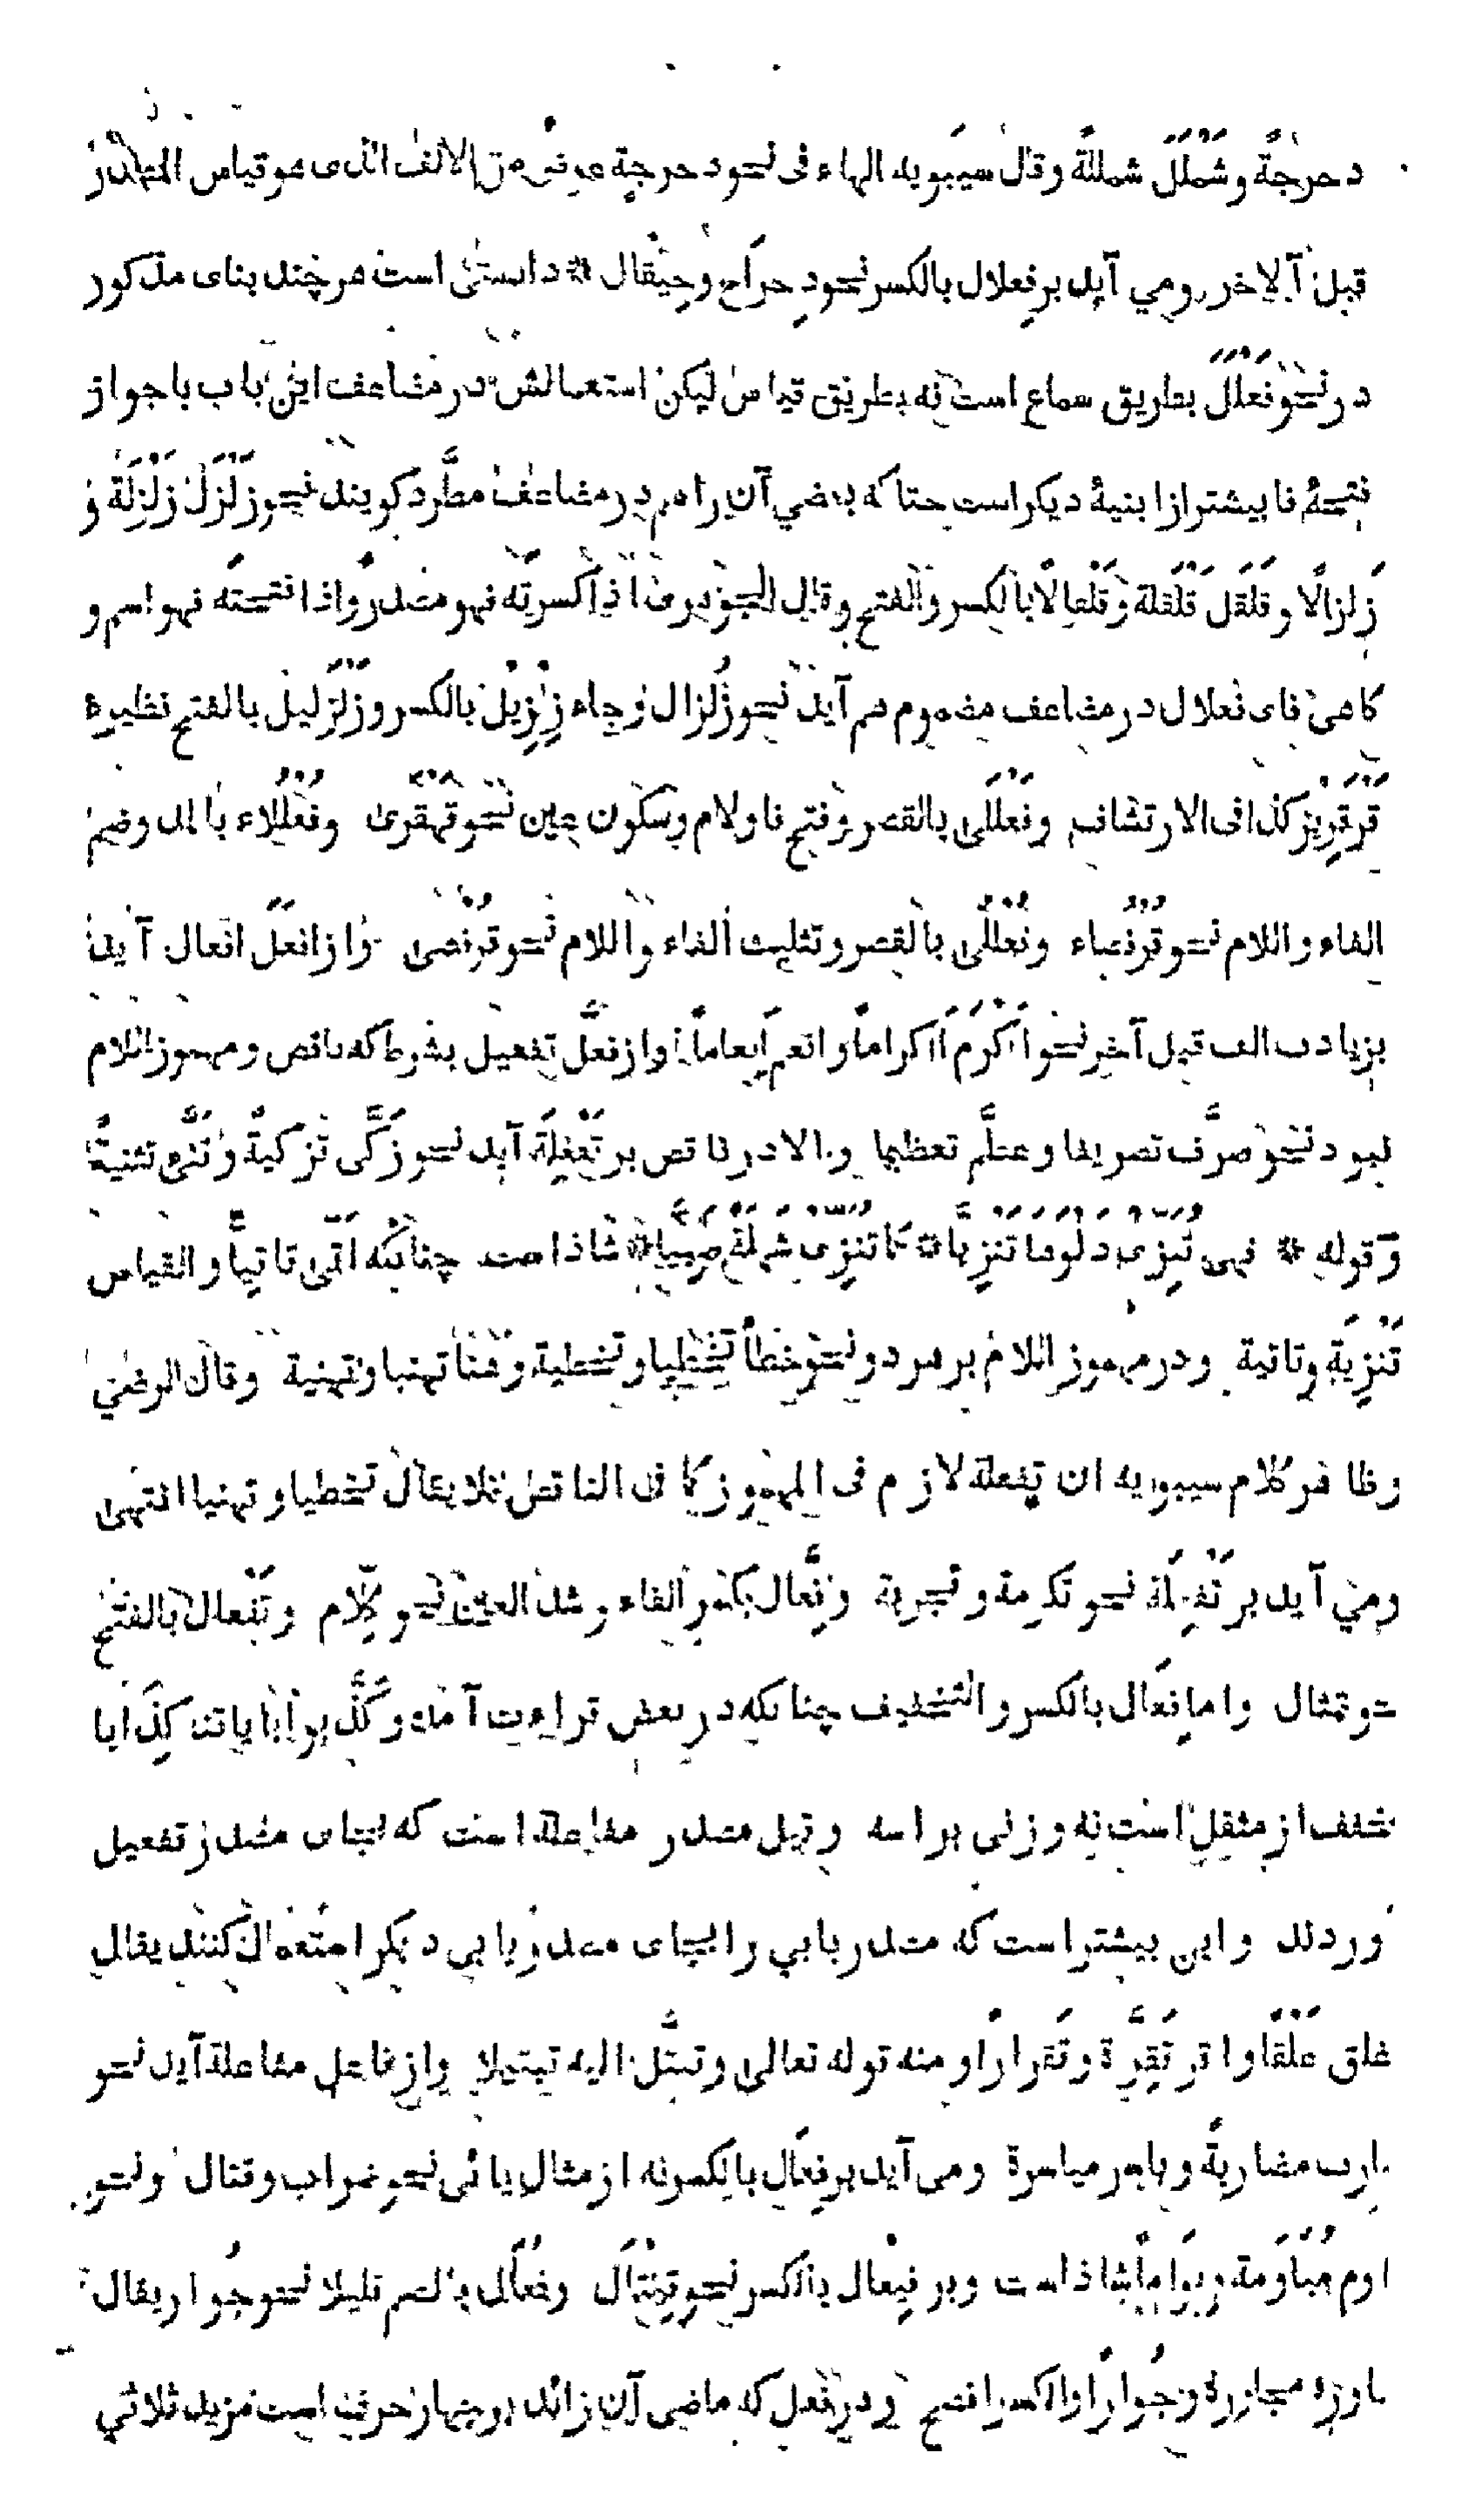 دحرجةً وشَمْلَلَ شمللةً وقال سيبويه الهاء فى نحو دحرجة عوض من الالف الذى هو قياس المصدر
قبل آلاخر ومي آيد بر فِعلال بالكسر نحو دِحراج وحِيْقال * دانستنى است هر چند بناى مذكور
در نحو فَعْلَلَ بطريق سماع است نه بطريق قياس ليكن استعمالش در مضاعف اين باب با جواز
فتحهٔ فا بيشتر از ابنيهٔ ديكر است حتا كه بعضي آن را هم در مضاعف مطَّرد كويند نحو زَلْزَلَ زَلْزَلَةً و
زَلزالًا وقَلقَلَ قَلْقَلة وقَلْقالًا بالكسر والفتح وقال النحويون اذا كسرته فهو مصدر واذا فتحته فهو اسم و
كاهى فاى فعلال در مضاعف مضموم هم آيد نحو زُلزال وجاء زِلْزِيْل بالكسر وزَلْزَليل بالفتح نظيرهٔ
قَرْقَرِيْر كذا فى الارتشاف وفَعْلَلَى بالقصر وفتح فا ولام وسكون عين نحو قَهْقَرى وفُعْلُلاء بالمد وضم
الفاء واللام نحو قُرْفُصاء وفُعْلُلَى بالقصر وتثليث الفاء واللام نحو قرفصى واز افعلَ افعال آيد
بزيادت الف قبل آخر نحو اَكْرَمَ اِكراماً وانعم اِنعاماً واز فعَّل تفعيل بشرط كه ناقص ومهموز اللام
نبود نحو صرَّف تصريفا وعظَّم تعظيما والا در ناقص بر تَفْعِلَة آيد نحو زَكَّى تزكيةً وثَنَّى تثنيةً
وقوله * فهى تُنَزِّى دَلْوَها تَنْزِيًّا * كما تُنَزِّى شَهْلَةٌ صَبِيًّا * شاذ است چنانكه اَتَّى تاتيًّا والقياس
تَنْزِيَة وتاتية ودر مهموز اللام بر هر دو نحو خطَّأ تخطيا وتخطية وهَنَّأ تهنيا وتهنية وقال الرضي
وظاهر كلام سيبويه ان تفعلة لازم فى المهموز كما فى الناقص فلا يقال تخطيا وتهنيا انتهى
ومي آيد بر تَفْعِلَة نحو تكرمة وتجربة وفِعَّال بكسر الفاء وشد العين نحو كِلّام وتَفْعال بالفتح
حو تمثال واما فِعَال بالكسر والتخفيف چنانكه در بعض قراءت آمده وكَذَّبوا بآياتنا كِذَابا
مخفف از مثقل است نه وزنى براسه وقيل مصدر مفاعلة است كه بجاى مصدر تفعيل
ورده اند واين بيشتر است كه مصدر بابي را بجاى مصدر بابى ديكر استعمال كنند يقال
علق عَلْقًا واقر تَقِرَّة وتَقرارًا ومنه قوله تعالى وتبتَّل اليه تبتيلا واز فاعل مفاعلة آيد نحو
ارب مضاربةً وياسر مياسرة ومى آيد بر فِعَال بالكسر نه از مثال يائى نحو ضراب وقتال ونحو
اوم مُياوَمة ويِوَاماً شاذ است وبر فِيْعال بالكسر نحو قِيْتَال وفُعَال بالضم قليلا نحو جُوار يقال
اوره مجاورة وجُوارًا والكسر افصح ودر فعل كه ماضى آن زائد بر چهار حرف است مزيد ثلاثي